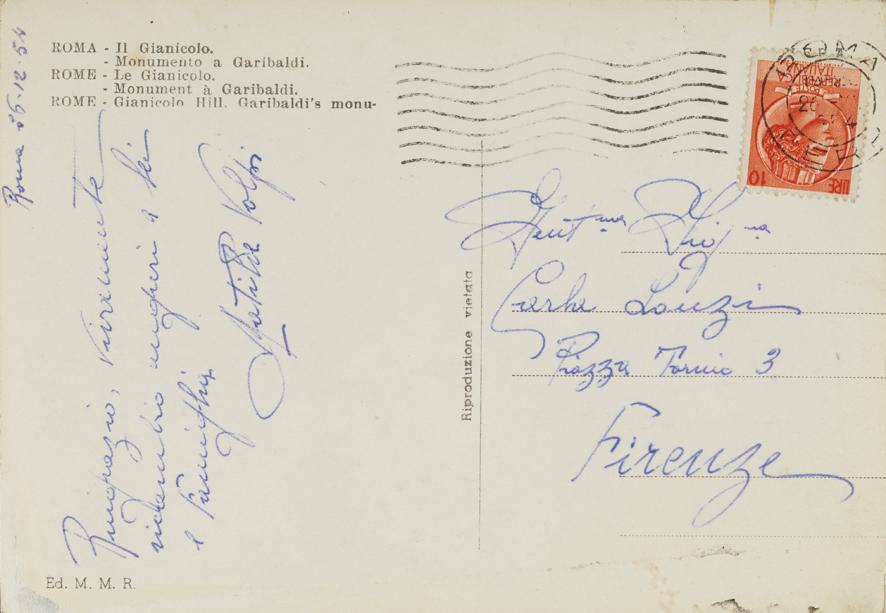 ROMA - Il Gianicolo.
- Monumento a Garibaldi.
ROME - Le Gianicolo.
- Monument à Garibaldi.
ROME - Gianicolo Hill. Garibaldi's monu-
Roma 26-12-54
Ringrazio, vivamente
ricambio auguri a Lei
e famiglia
Matilde Volpi
Ed. M. M. R.
Riproduzione vietata
ROMA
POSTE ITALIANE
LIRE 10
Gent.ma Sig.na
Carla Lonzi
Piazza Tornio 3
Firenze